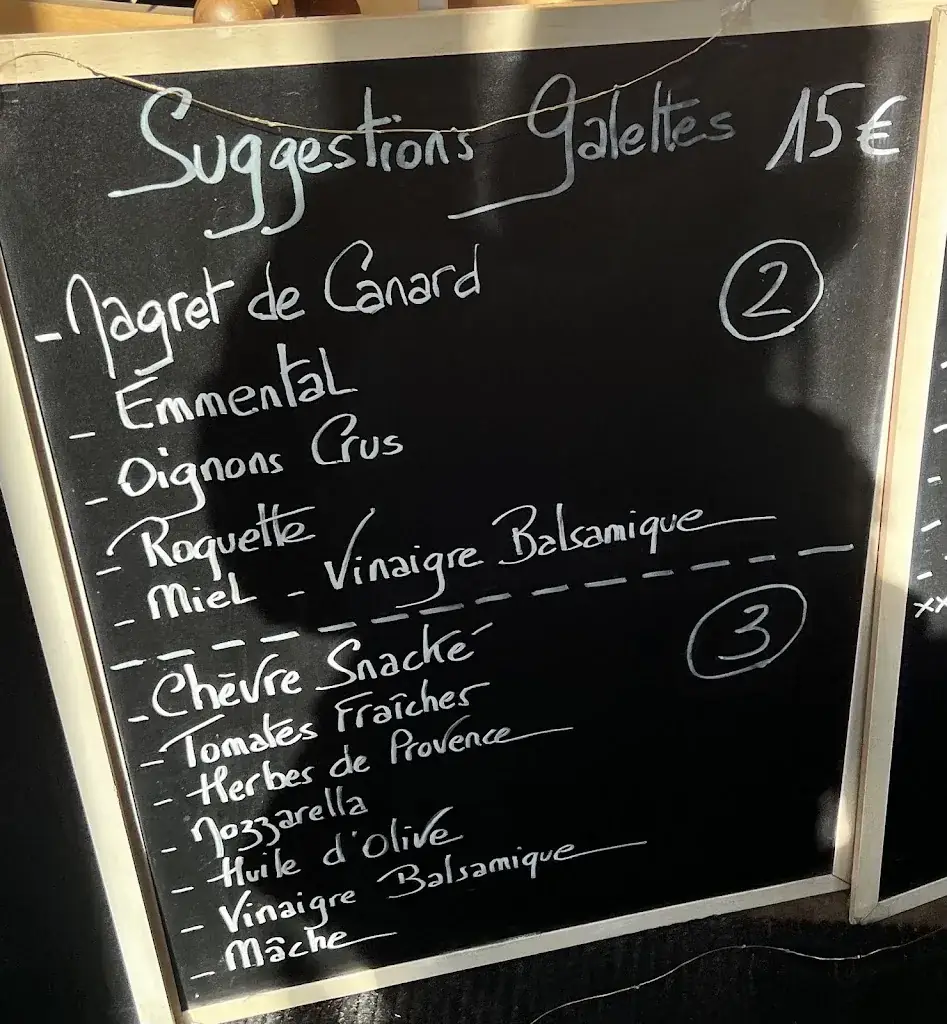 Suggestions Galettes 15€
- Magret de Canard ②
- Emmental
- Oignons Crus
- Roquette
- Miel - Vinaigre Balsamique
- Chèvre Snacké ③
- Tomates Fraîches
- Herbes de Provence
- Mozzarella
- Huile d'Olive
- Vinaigre Balsamique
- Mâche
xx